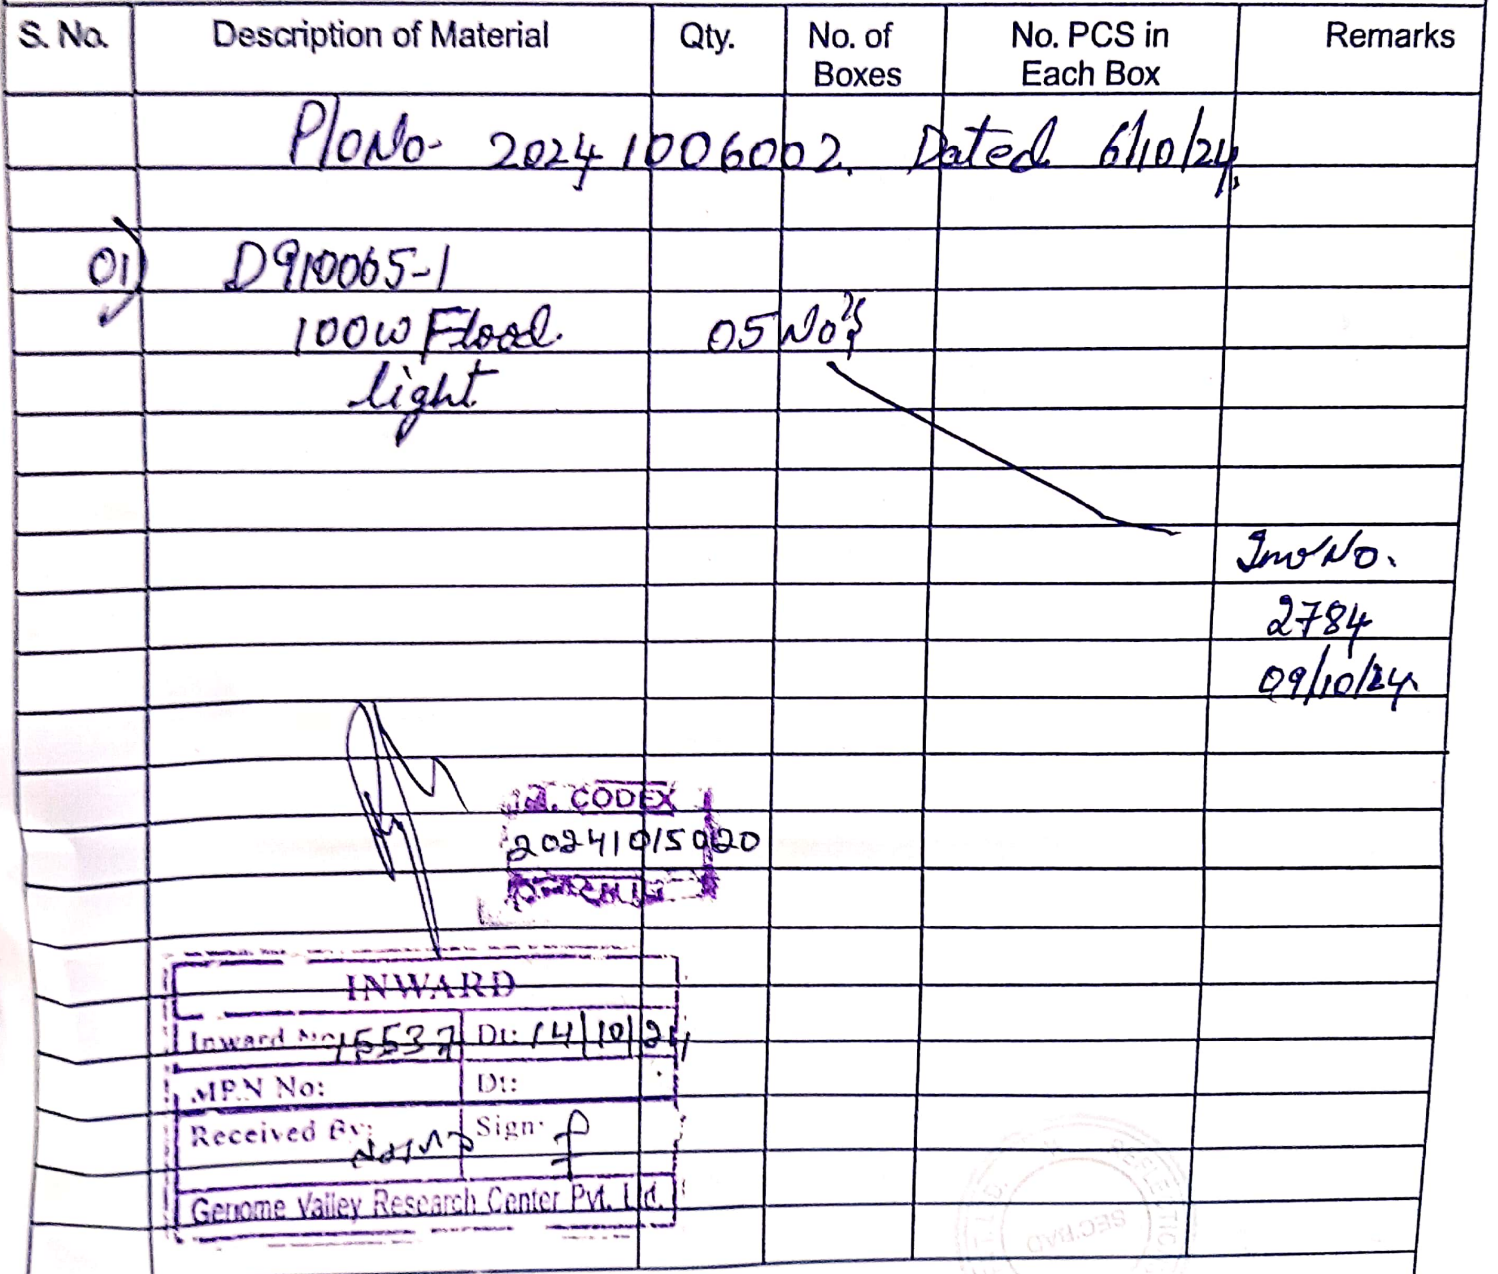 S. No. Description of Material Qty. No. of Boxes No. PCS in Each Box Remarks
P/o No- 20241006002. Dated 6/10/24.
01) D910065-1
100W Flood 05 No's
light
Inv No.
2784
09/10/24
CODEX
20241015020
INWARD
Inward No: 15537 Dt: 14/10/24
MRN No: Dt:
Received By: Sign:
Genome Valley Research Center Pvt. Ltd.
SEC'BAD